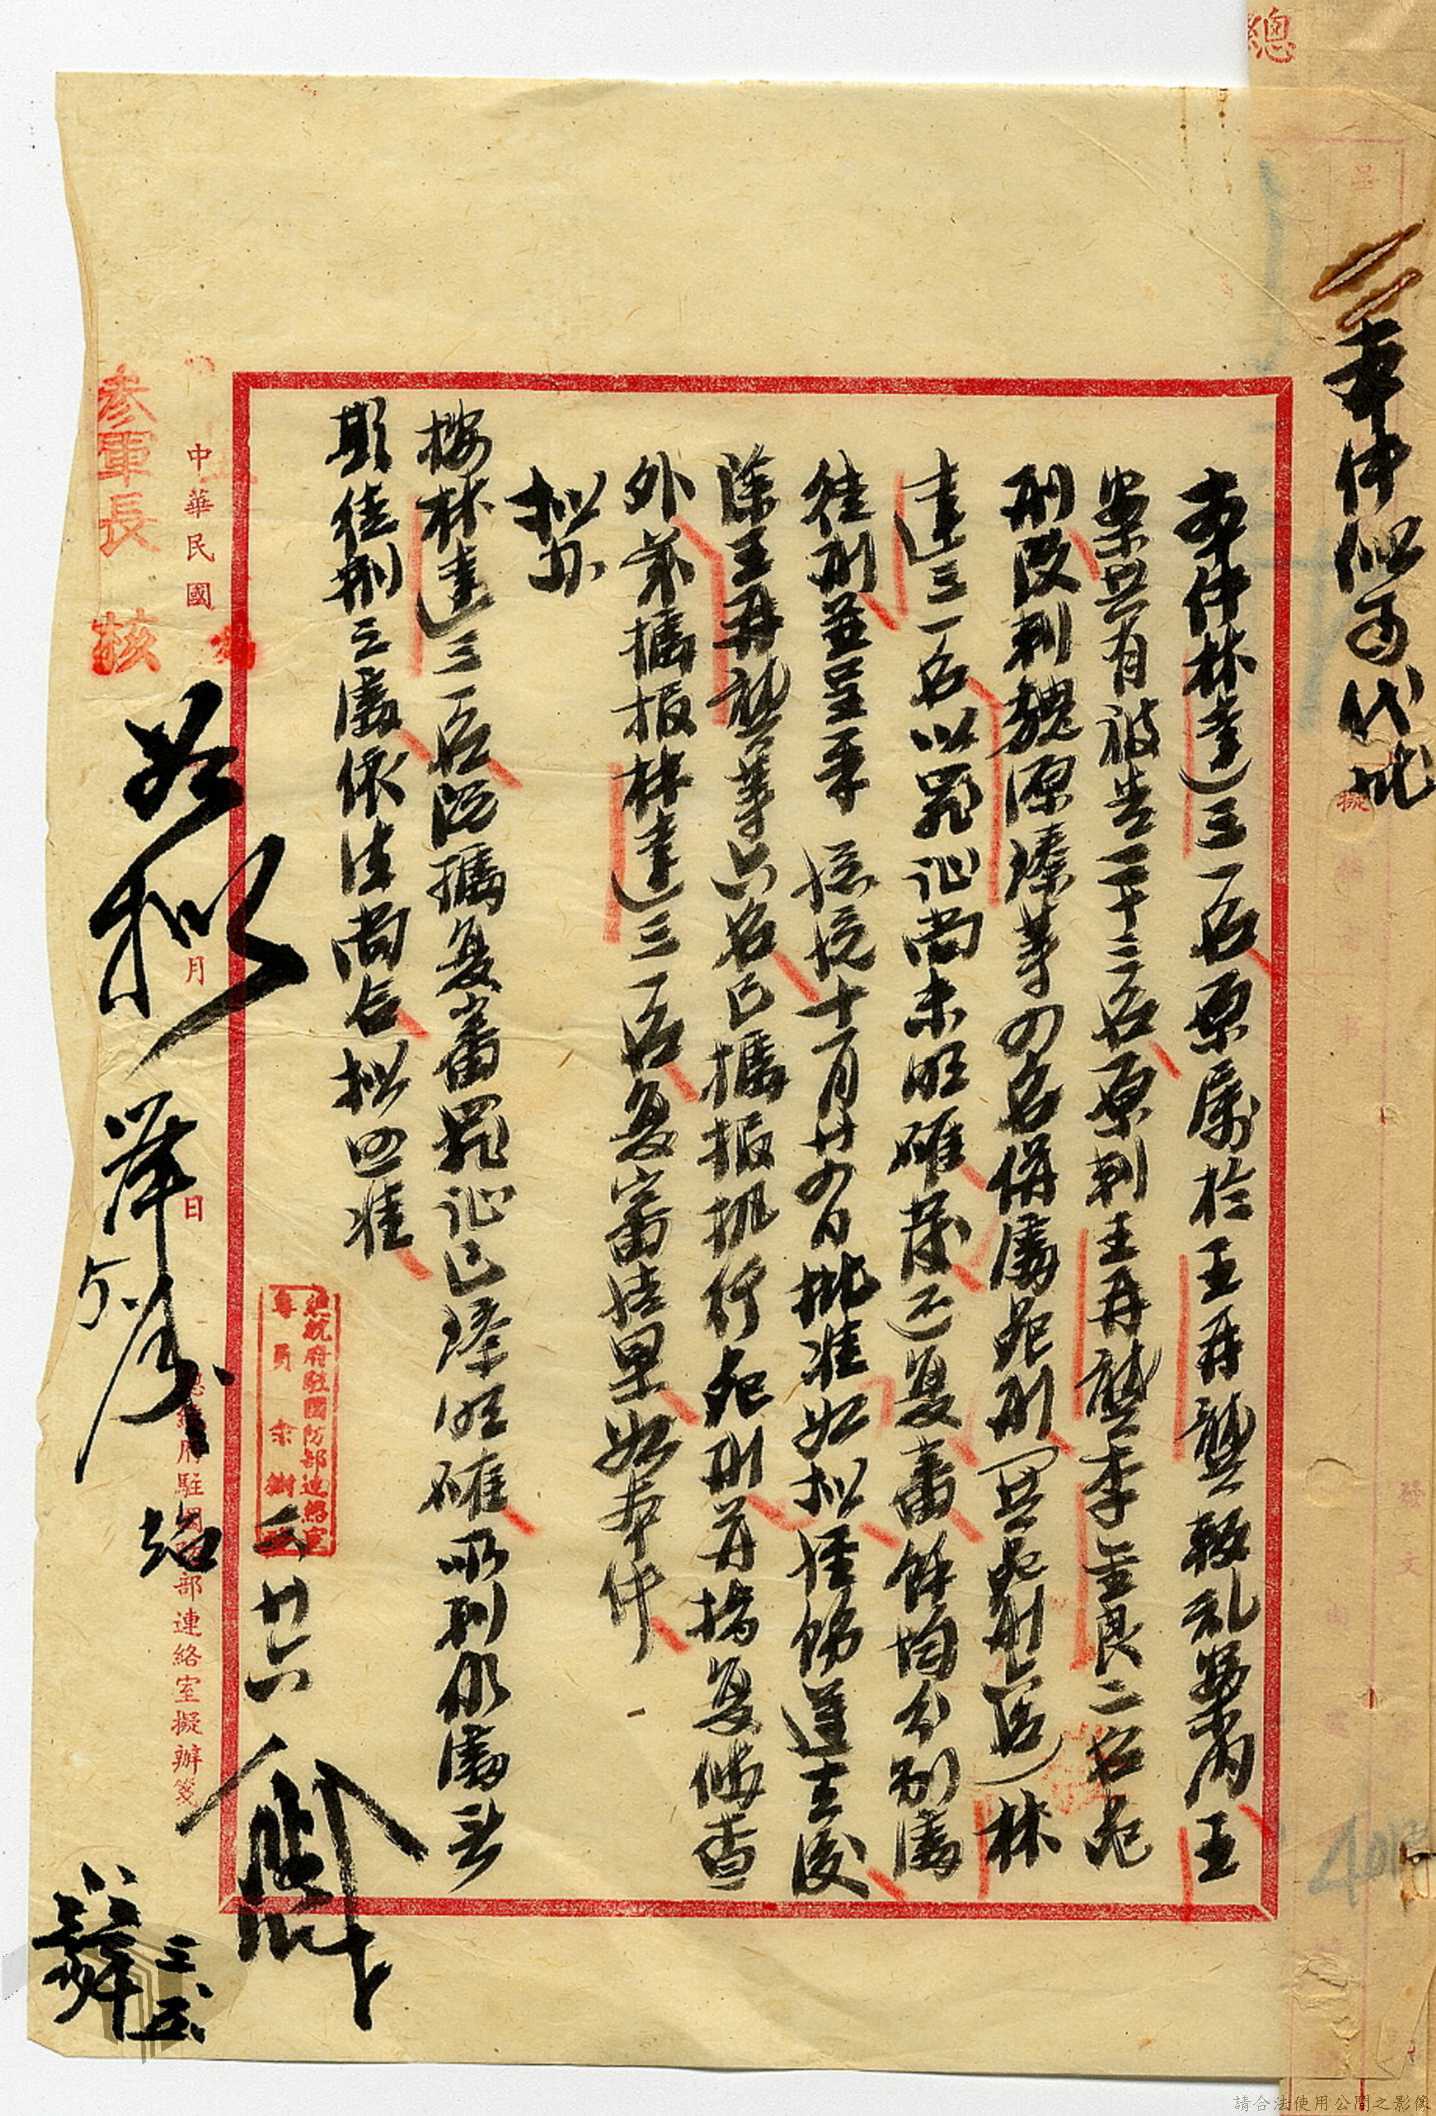 總
呈
本件似可代批
擬
發文
401
本件林達三一名原屬於王再龔叛亂案內王
案共有被告二十三名原判王再龔李金良二名死
刑改判魏源溱等四名併處死刑(共死刑六名)林
達三一名以罪証尚未明確發還復審餘均分別處
徒刑並呈奉 總統十一月廿四日批准如擬經飭遵去後
除王再龔等六名已據報執行死刑并摘复備查
外茲據报林達三一名复審結果如本件
擬办
按林達三一名既據复審罪証已臻明確所判仍處無
期徒刑之處依法尚合擬照准
總統府駐國防部連絡室
專員 余樹
二廿六
中華民國
月
日
總統府駐國防部連絡室擬辦箋
參軍長 核
如擬
三五
請合法使用公開之影像